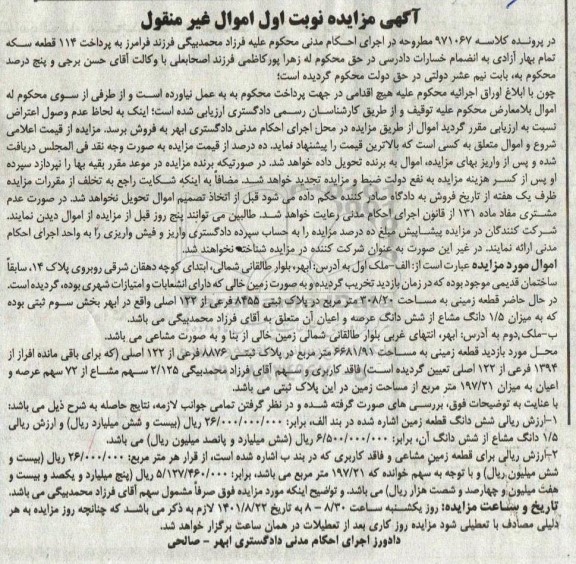 آگهی مزایده نوبت اول اموال غیر منقول
در پرونده کلاسه ۹۷۱۰۶۷ مطروحه در اجرای احکام مدنی محکوم علیه فرزاد محمدبیگی فرزند فرامرز به پرداخت ۱۱۴ قطعه سکه
تمام بهار آزادی به انضمام خسارات دادرسی در حق محکوم له زهرا پورکاظمی فرزند اصحابعلی با وکالت آقای حسن برجی و پنج درصد
محکوم به، بابت نیم عشر دولتی در حق دولت محکوم گردیده است؛
چون با ابلاغ اوراق اجرائیه محکوم علیه هیچ اقدامی در جهت پرداخت محکوم به به عمل نیاورده است و از طرفی از سوی محکوم له
اموال بلامعارض محکوم علیه توقیف و از طریق کارشناسان رسمی دادگستری ارزیابی شده است؛ اینک به لحاظ عدم وصول اعتراض
نسبت به ارزیابی مقرر گردید اموال از طریق مزایده در محل اجرای احکام مدنی دادگستری ابهر به فروش برسد. مزایده از قیمت اعلامی
شروع و اموال متعلق به کسی است که بالاترین قیمت را پیشنهاد نماید. ده درصد از قیمت مزایده به صورت وجه نقد فی المجلس دریافت
شده و پس از واریز بهای مزایده، اموال به برنده تحویل داده خواهد شد. در صورتیکه برنده مزایده در موعد مقرر بقیه بها را نپردازد سپرده
او پس از کسر هزینه مزایده به نفع دولت ضبط و مزایده تجدید خواهد شد. مضافاً به اینکه شکایت راجع به تخلف از مقررات مزایده
ظرف یک هفته از تاریخ فروش به دادگاه صادر کننده حکم داده می شود قبل از اتخاذ تصمیم اموال تحویل نخواهد شد. در صورت عدم
مشتری مفاد ماده ۱۳۱ از قانون اجرای احکام مدنی رعایت خواهد شد. طالبین می توانند پنج روز قبل از مزایده از اموال دیدن نمایند.
شرکت کنندگان در مزایده پیشاپیش مبلغ ده درصد مزایده را به حساب سپرده دادگستری واریز و فیش واریزی را به واحد اجرای احکام
مدنی ارائه نمایند. در غیر این صورت به عنوان شرکت کننده در مزایده شناخته نخواهند شد.
اموال مورد مزایده عبارت است از: الف-ملک اول به آدرس: ابهر، بلوار طالقانی شمالی، ابتدای کوچه دهقان شرقی روبروی پلاک ۱۴، سابقاً
ساختمان قدیمی موجود بوده که در زمان بازدید تخریب گردیده و به صورت زمین خالی که دارای انشعابات و امتیازات شهری بوده، گردیده است.
در حال حاضر قطعه زمینی به مساحت ۲۰۸/۲۰ متر مربع در پلاک ثبتی ۸۴۵۵ فرعی از ۱۲۲ اصلی واقع در ابهر بخش سوم ثبتی بوده
که به میزان ۱/۵ دانگ مشاع از شش دانگ عرصه و اعیان آن متعلق به آقای فرزاد محمدبیگی می باشد.
ب-ملک دوم به آدرس: ابهر، انتهای غربی بلوار طالقانی شمالی زمین خالی از بنا و به صورت مشاعی می باشد.
محل مورد بازدید قطعه زمینی به مساحت ۶۶۸۱/۹۱ متر مربع در پلاک ثبتی ۸۸۷۶ فرعی از ۱۲۲ اصلی (که برای باقی مانده افراز از
۱۳۹۴ فرعی از ۱۲۲ اصلی تعیین گردیده است) فاقد کاربری و سهم آقای فرزاد محمدبیگی ۲/۱۲۵ سهم مشاع از ۷۲ سهم عرصه و
اعیان به میزان ۱۹۷/۲۱ متر مربع از مساحت زمین در این پلاک ثبتی می باشد.
با عنایت به توضیحات فوق، بررسی های صورت گرفته شده و در نظر گرفتن تمامی جوانب لازمه، نتایج حاصله به شرح ذیل می باشد:
۱-ارزش ریالی شش دانگ قطعه زمین اشاره شده در بند الف، برابر: ۲۶/۰۰۰/۰۰۰/۰۰۰ ریال (بیست و شش میلیارد ریال) و ارزش ریالی
۱/۵ دانگ مشاع از شش دانگ آن، برابر: ۶/۵۰۰/۰۰۰/۰۰۰ ریال (شش میلیارد و پانصد میلیون ریال) می باشد.
۲-ارزش ریالی برای قطعه زمین مشاعی و فاقد کاربری که در بند ب اشاره شده است، از قرار هر متر مربع: ۲۶/۰۰۰/۰۰۰ ریال (بیست و
شش میلیون ریال) و با توجه به سهم خوانده که ۱۹۷/۲۱ متر مربع می باشد، برابر: ۵/۱۲۷/۴۶۰/۰۰۰ ریال (پنج میلیارد و یکصد و بیست و
هفت میلیون و چهارصد و شصت هزار ریال) می باشد. و توضیح اینکه مورد مزایده فوق صرفاً مشمول سهم آقای فرزاد محمدبیگی می باشد.
تاریخ و ساعت مزایده: روز یکشنبه ساعت ۸/۳۰ – ۸ به تاریخ ۱۴۰۱/۸/۲۲ لازم به ذکر می باشد که چنانچه روز مزایده به هر
دلیلی مصادف با تعطیلی شود مزایده روز کاری بعد از تعطیلات در همان ساعت برگزار خواهد شد.
دادورز اجرای احکام مدنی دادگستری ابهر – صالحی